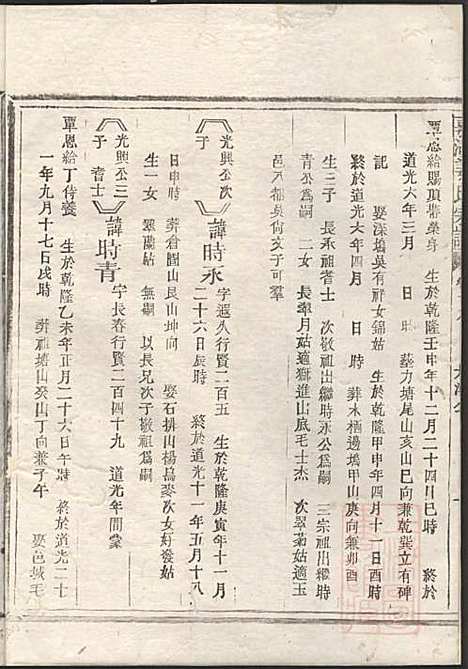 覃恩給賜頂帶榮身 生於乾隆壬申年十二月二十四日巳時 終於
道光六年三月 日 時 塟力塘尾山亥山巳向兼乾巽立有碑
記 娶深塢吳有祥女錦姑 生於乾隆甲申年四月十一日酉時
終於道光六年四月 日 時 葬木栖邊塢甲山庚向兼卯酉
生三子 長承祖耆士 次敬祖出繼時永公為嗣 三宗祖出繼時
青公為嗣 二女 長翠月姑適獄進山底毛士杰 次翠菊姑適玉
邑六都吳尚亥子可引
光興公次子 諱時永 字遜八行賢二百五 生於乾隆庚寅年十一月
二十六日辰時 終於道光十一年五月十八
日申時 葬倉閣山艮山坤向 娶石排山楊昌麥次女好發姑
生一女 翠蘭姑 無嗣 以長兄次子敬祖為嗣
光興公三子耆士 諱時青 字長春行賢二百四十九 道光年間蒙
覃恩給丁侍養 生於乾隆乙未年正月二十六日午時 終於道光二十
一年九月十七日戌時 葬祖塘山癸山丁向兼子午 娶邑城毛